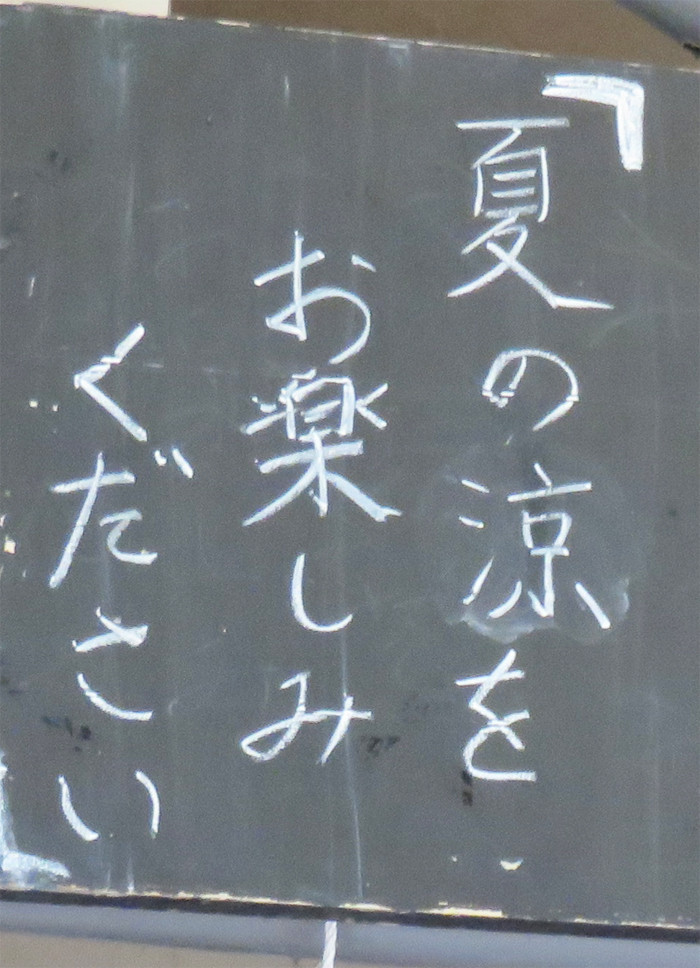 「夏の涼を
お楽しみ
ください」